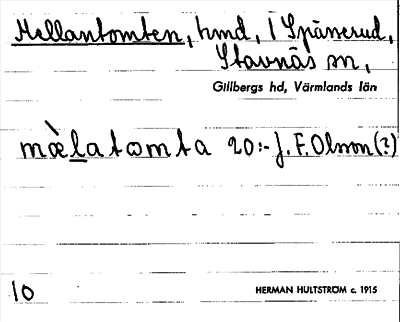 Mellantomten, hmd, i Spässerud,
Stavnäs sn,
Gillbergs hd, Värmlands län
mæ̀latomta 20:- J. F. Olsson (?)
10
HERMAN HULTSTRÖM c. 1915